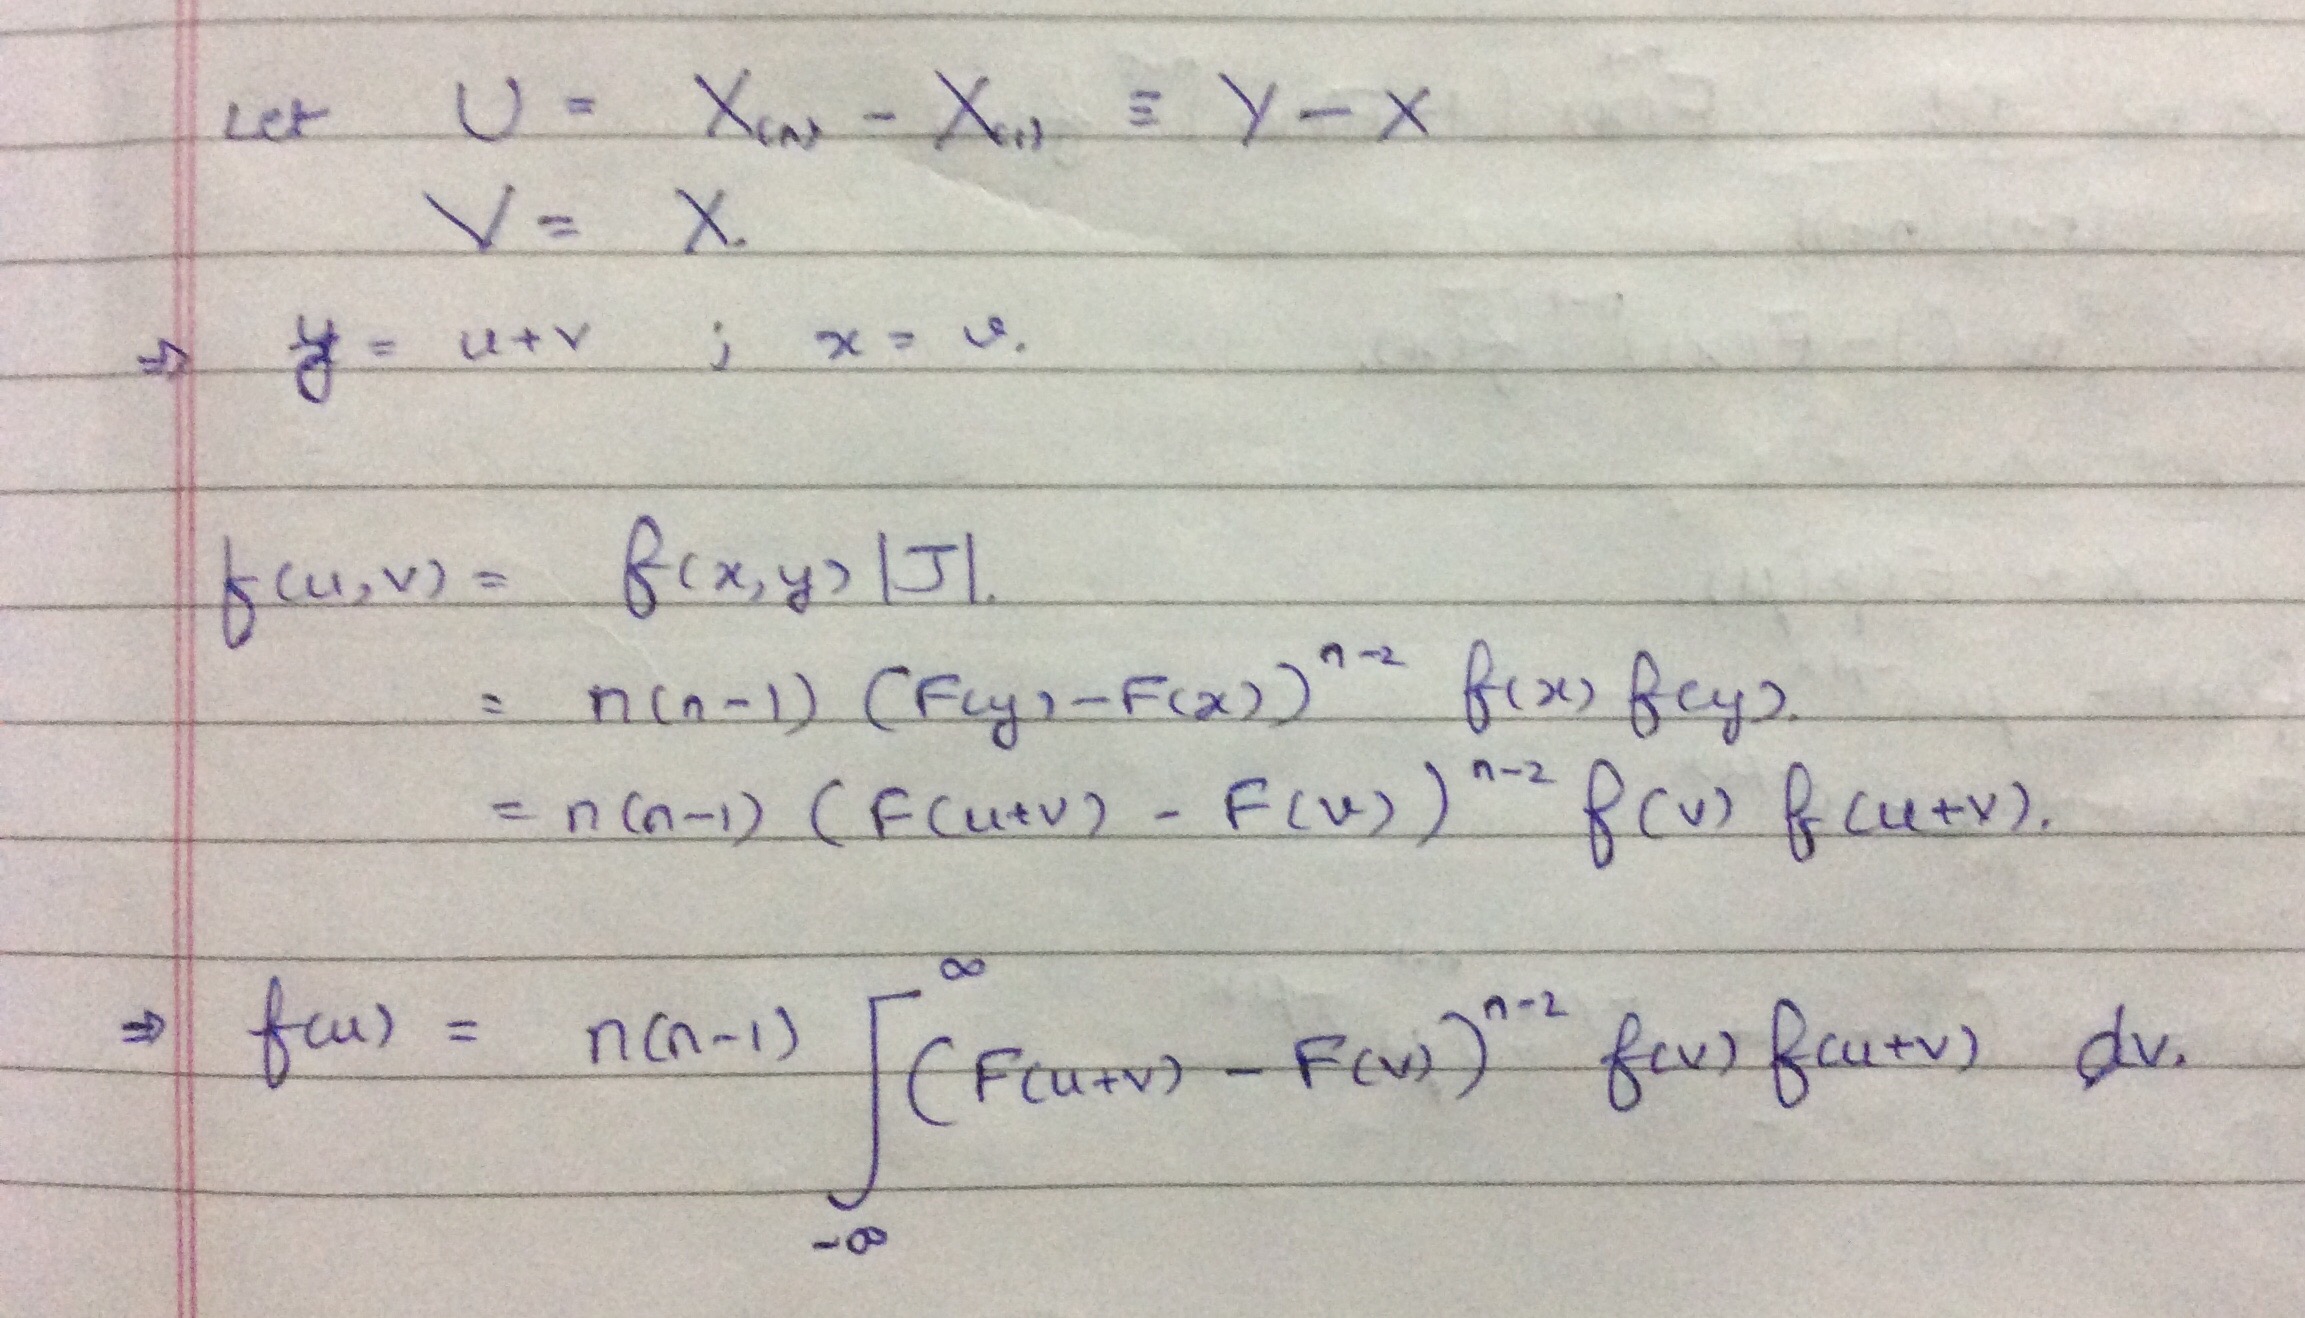 Let U = X₍ₙ₎ - X₍₁₎ ≡ Y - X
V = X.
⇒ y = u+v ; x = v.
f(u,v) = f(x,y) |J|.
= n(n-1) (F(y) - F(x))ⁿ⁻² f(x) f(y).
= n(n-1) (F(u+v) - F(v))ⁿ⁻² f(v) f(u+v).
⇒ f(u) = n(n-1) ∫_{-∞}^{∞} (F(u+v) - F(v))ⁿ⁻² f(v) f(u+v) dv.